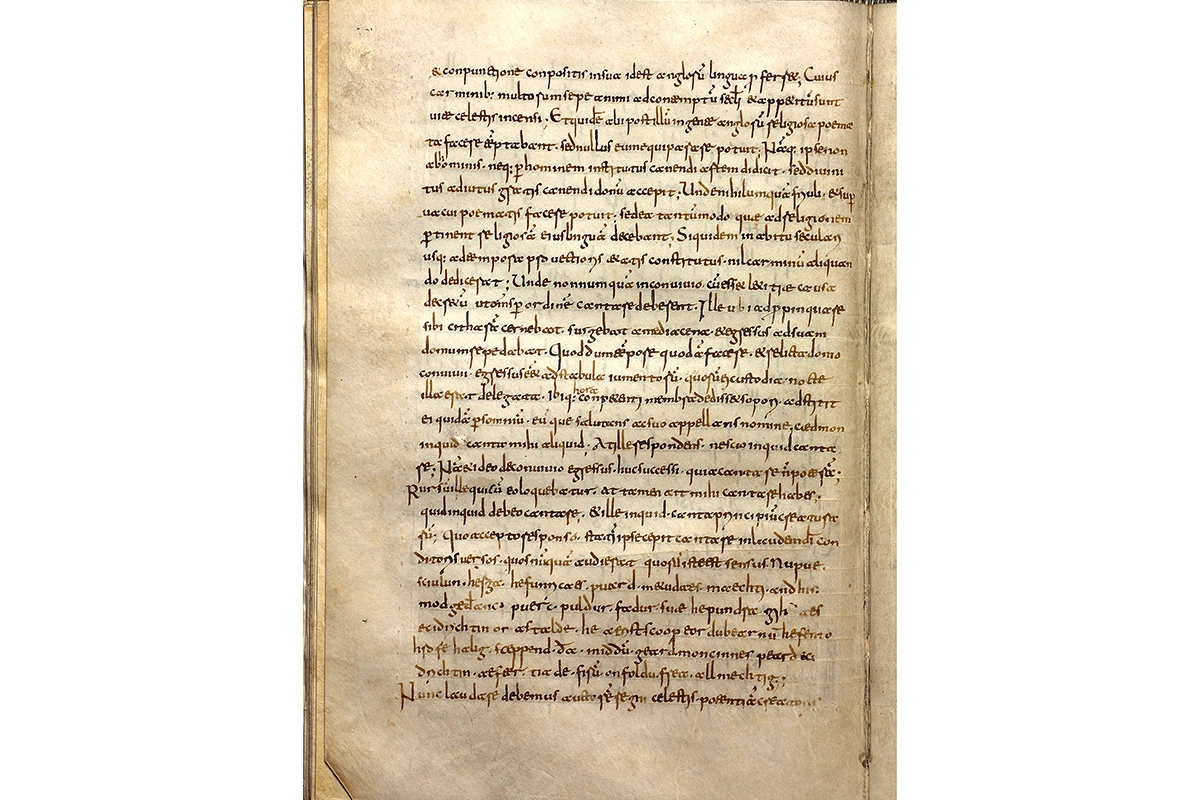 & conpunctione conpositis in sua id est anglorū lingua pferret; Cuius
carminib; multorum sepe animi ad contemptū secłi & appetitū sunt
vitae celestis incensi. Et quidē alii post illū in gente anglorū religiosa poema
ta facere tēptabant. sed nullus eum equiparare potuit; Nāq; ipse non
ab hominib. neq; p hominem institutus canendi artem didicit. sed divini
tus adiutus gratis canendi donū accepit; Unde nihil umquā frivoli. & sup
vacui poematis facere potuit. sed ea tantūmodo que ad religionem
ptinent religiosā eius linguā decebant; Siquidem in abitu seculari
usq; ad tempora provectioris aetatis constitutus. nil carminū aliquan
do dedicerat; Unde nonnumquā in convivio. cū esset letitiae causa
decretū ut oms p ordinē cantare deberent. Ille ubi adppinquare
sibi citharā cernebat. surgebat a media cena. & egressus ad suam
domum repedabat. Quod dum tēpore quodā faceret. & relicta domo
convivii. egressus eēt ad stabula iumentorū. quorū ei custodia nocte
illa erat delegata. Ibiq; hora conpetenti membra dedisset sopori. adstitit
ei quidā p somniū. eūque salutans ac suo appellans nomine. caedmon
inquid canta mihi aliquid. At ille respondens. nescio inquid canta
re; Nā & ideo de convivio egressus. huc successi. quia cantare ñ poterā;
Rursū ille qui cū eo loquebatur. at tamen ait mihi cantare habes.
quid inquid debeo cantare. & ille inquid. canta principiū creatura
rū; Quo accepto responso. statī ipse cepit cantare in laudem dī con
ditoris versos. quos nūquā audierat quorū iste est sensus Nu pue
sciulun. herga. hefunricaes. puard. metudaes. maechti. and his
modgedanc. puerc. puldur. fadur. sue he pundra gih aes
eci drichtin or astalde. he aerist scoop eordu bearnū hefen to
hrofe halig. sceppend. dā. middū. geard moncinnes peard eci
drichtin. aefter. tiade. firū. on foldu. frea. allmechtig;
Nunc laudare debemus auctorē regni celestis. potentiā creatoris